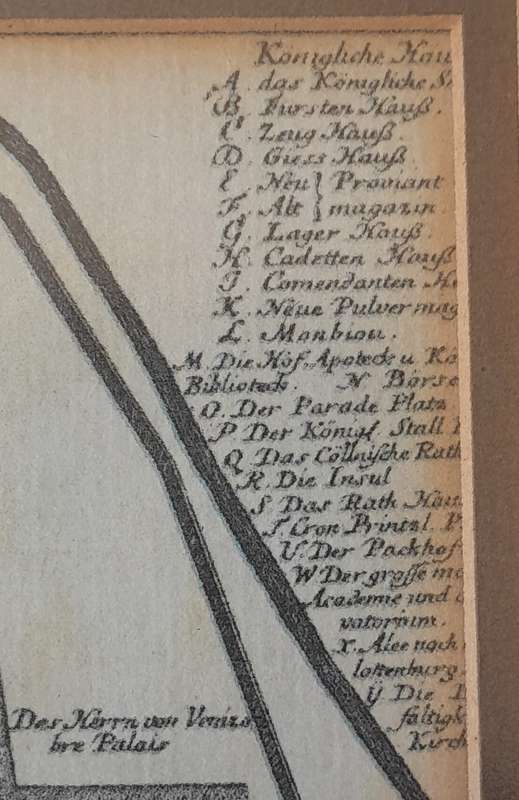 Königliche Hau
A. das Königliche S
B. Fursten Hauß.
C. Zeug Hauß.
D. Giess Hauß
E. Neu } Proviant
F. Alt } magazin
G. Lager Hauß.
H. Cadetten Hauß
J. Comendanten H
K. Neue Pulvermag
L. Monbiou.
M. Die Hof Apoteck u Ko
Biblioteck. N Börse
O. Der Parade Platz
P Der Königl Stall
Q Das Cöllnische Rath
R. Die Insul
S Das Rath Hau
T. Cron Printzl. P
U. Der Packhof
W Der grosse m
Academie und
vatorium.
x. Alee nach
lottenburg
ÿ Die
faltigk
Kirch
Des Herrn von
bre Palais